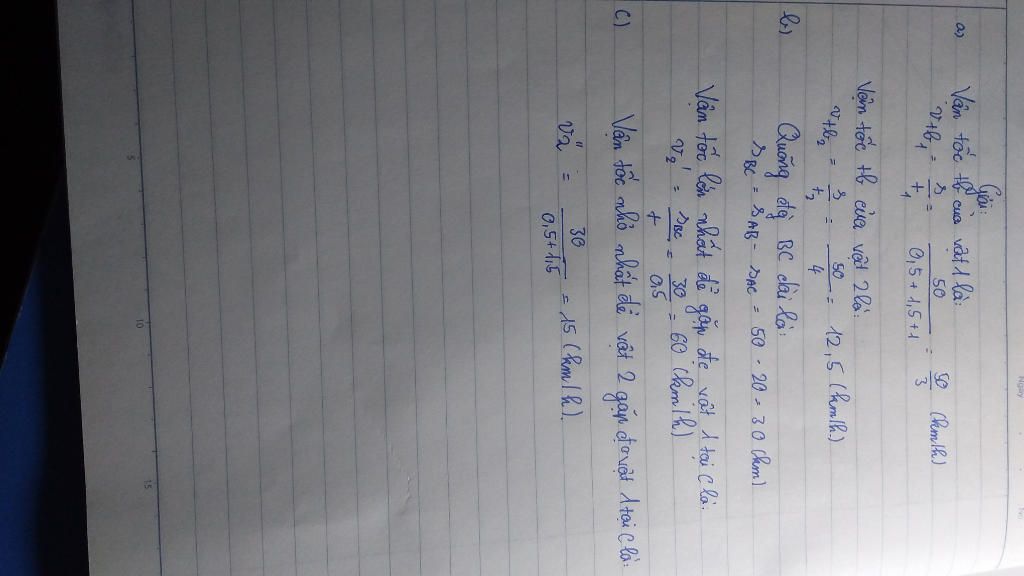 Giải:
a) Vận tốc tb của vật 1 là:
vtb₁ = s/t₁ = 50/(0,5 + 1,5 + 1) = 50/3 (km/h)
Vận tốc tb của vật 2 là:
vtb₂ = s/t₂ = 50/4 = 12,5 (km/h)
b) Quãng đg BC dài là:
s_BC = s_AB - s_AC = 50 - 20 = 30 (km)
Vận tốc lớn nhất để gặp đc vật 1 tại C là:
v₂' = s_BC/t = 30/0,5 = 60 (km/h)
c) Vận tốc nhỏ nhất để vật 2 gặp đc vật 1 tại C là:
v₂'' = 30/(0,5 + 1,5) = 15 (km/h).
5
10
15
Ngày
No